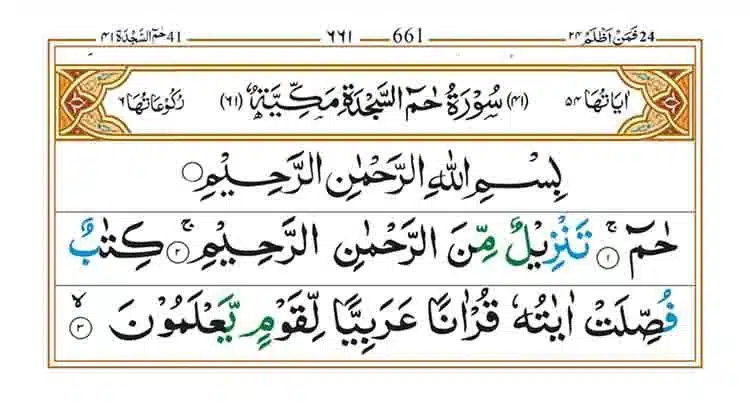 حٰمٓ السَّجْدَة ٤١ 41 ٦٦١ 661 فَمَنْ اَظْلَمُ ٢٤ 24
اٰيَاتُهَا ٥٤ (٤١) سُوْرَةُ حٰمٓ السَّجْدَةِ مَكِّيَّةٌ (٦١) رُكُوْعَاتُهَا ٦
بِسْمِ اللّٰهِ الرَّحْمٰنِ الرَّحِيْمِ
حٰمٓ ۚ ۝١ تَنْزِيْلٌ مِّنَ الرَّحْمٰنِ الرَّحِيْمِ ۚ ۝٢ كِتٰبٌ
فُصِّلَتْ اٰيٰتُهٗ قُرْاٰنًا عَرَبِيًّا لِّقَوْمٍ يَّعْلَمُوْنَ ۙ ۝٣